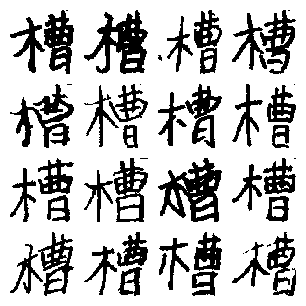 槽槽槽槽
槽槽槽槽
槽槽槽槽
槽槽槽槽